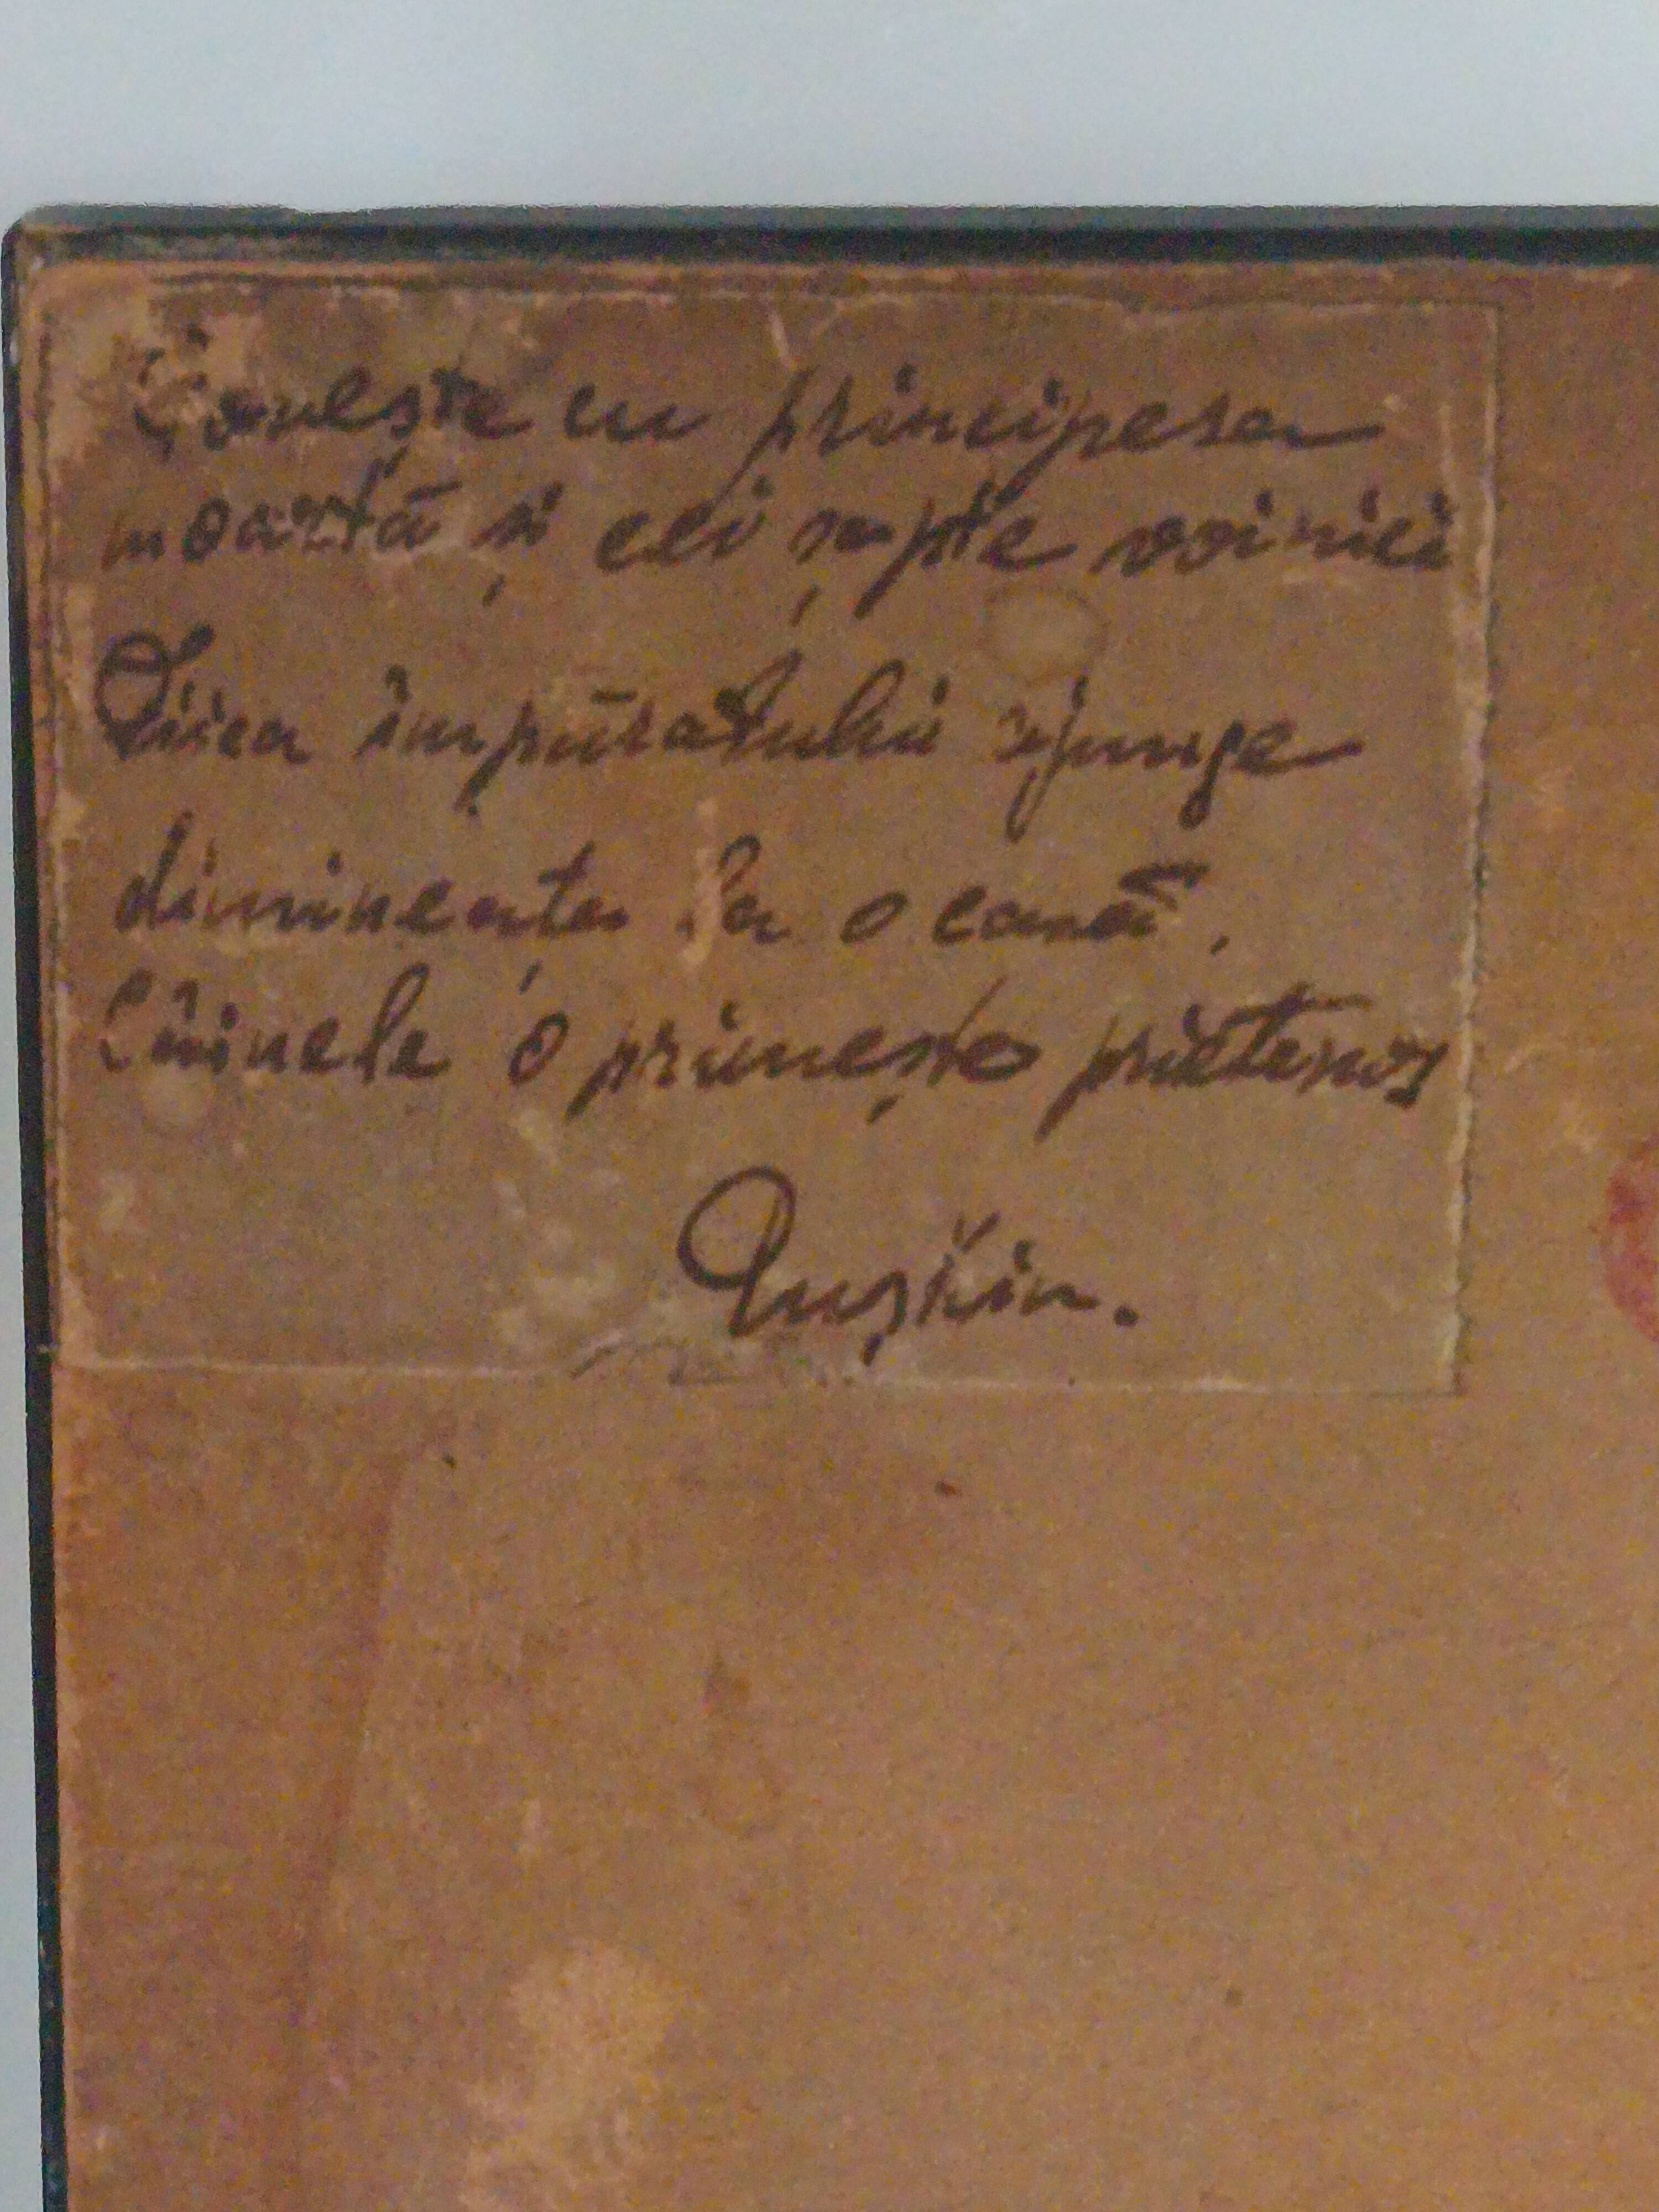 Poveste cu principesa
moartă și cei șapte voinici
Fiica împăratului ajunge
dimineața la o casă.
Cîinele o primește prietenos
Pușkin.